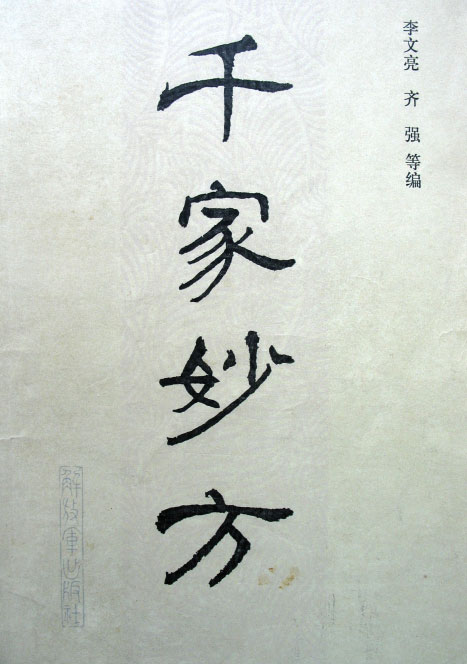 李文亮 齐强 等编
千家妙方
解放军出版社